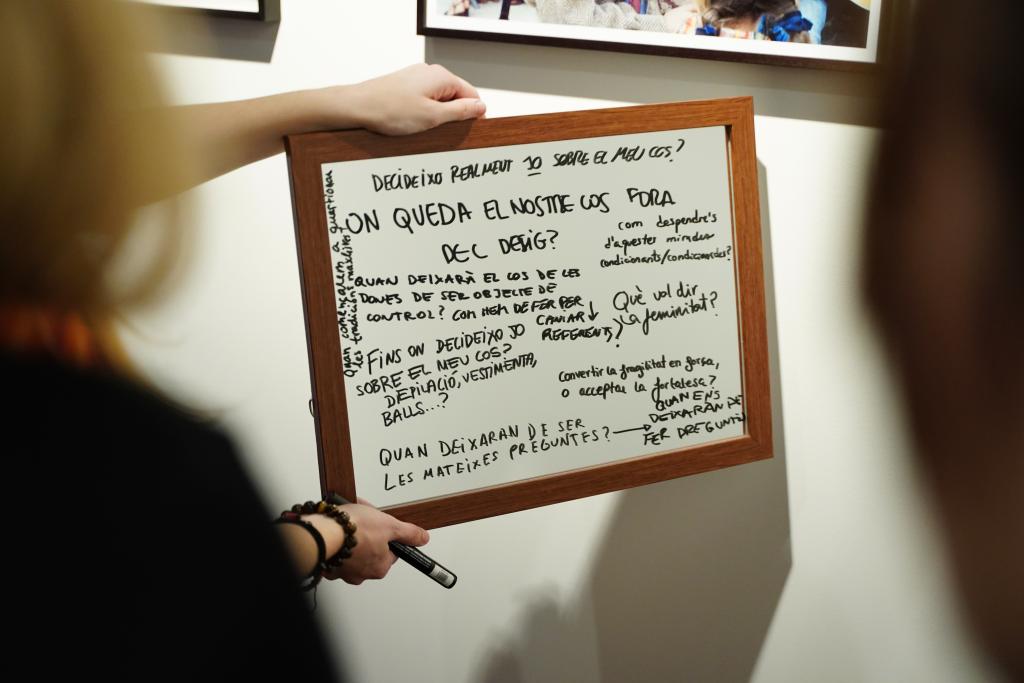 DECIDEIXO REALMENT JO SOBRE EL MEU COS?
ON QUEDA EL NOSTRE COS FORA
DEL DESIG?
com despendre's
d'aquestes mirades
condicionants/condicionades?
Quan començarem a qüestionar
les tradicions masclistes
QUAN DEIXARÀ EL COS DE LES
DONES DE SER OBJECTE DE
CONTROL? COM HEM DE FER PER
CANVIAR
REFERENTS?
Què vol dir
la feminitat?
FINS ON DECIDEIXO JO
SOBRE EL MEU COS?
DEPILACIÓ, VESTIMENTA,
BALLS...?
Convertir la fragilitat en força,
o acceptar la fortalesa?
QUAN DEIXARAN DE SER
LES MATEIXES PREGUNTES?
QUAN ENS
DEIXARAN DE
FER PREGUNTES